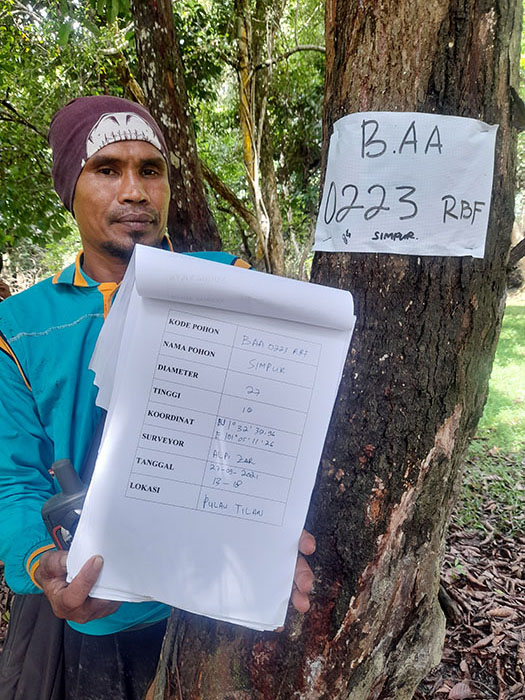 B.AA
0223 RBF
SIMPUR.
KODE POHON BAA 0223 RBF
NAMA POHON SIMPUR
DIAMETER 27
TINGGI 10
KOORDINAT N 1° 32' 30.96
E 101° 01' 11.26
SURVEYOR ALPI ZAR
TANGGAL 27-09-2021
13-18
LOKASI PULAU TILAN